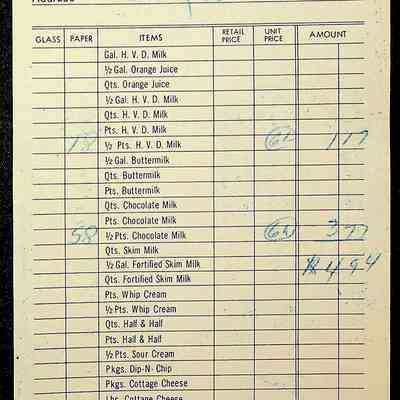 GLASS PAPER ITEMS RETAIL PRICE UNIT PRICE AMOUNT
Gal. H. V. D. Milk
½ Gal. Orange Juice
Qts. Orange Juice
½ Gal. H. V. D. Milk
Qts. H. V. D. Milk
Pts. H. V. D. Milk
18 ½ Pts. H. V. D. Milk 1 17
½ Gal. Buttermilk
Qts. Buttermilk
Pts. Buttermilk
Qts. Chocolate Milk
Pts. Chocolate Milk
58 ½ Pts. Chocolate Milk 6½ 3 77
Qts. Skim Milk
½ Gal. Fortified Skim Milk 4 94
Qts. Fortified Skim Milk
Pts. Whip Cream
½ Pts. Whip Cream
Qts. Half & Half
Pts. Half & Half
½ Pts. Sour Cream
Pkgs. Dip-N- Chip
Pkgs. Cottage Cheese
Lbs. Cottage Cheese